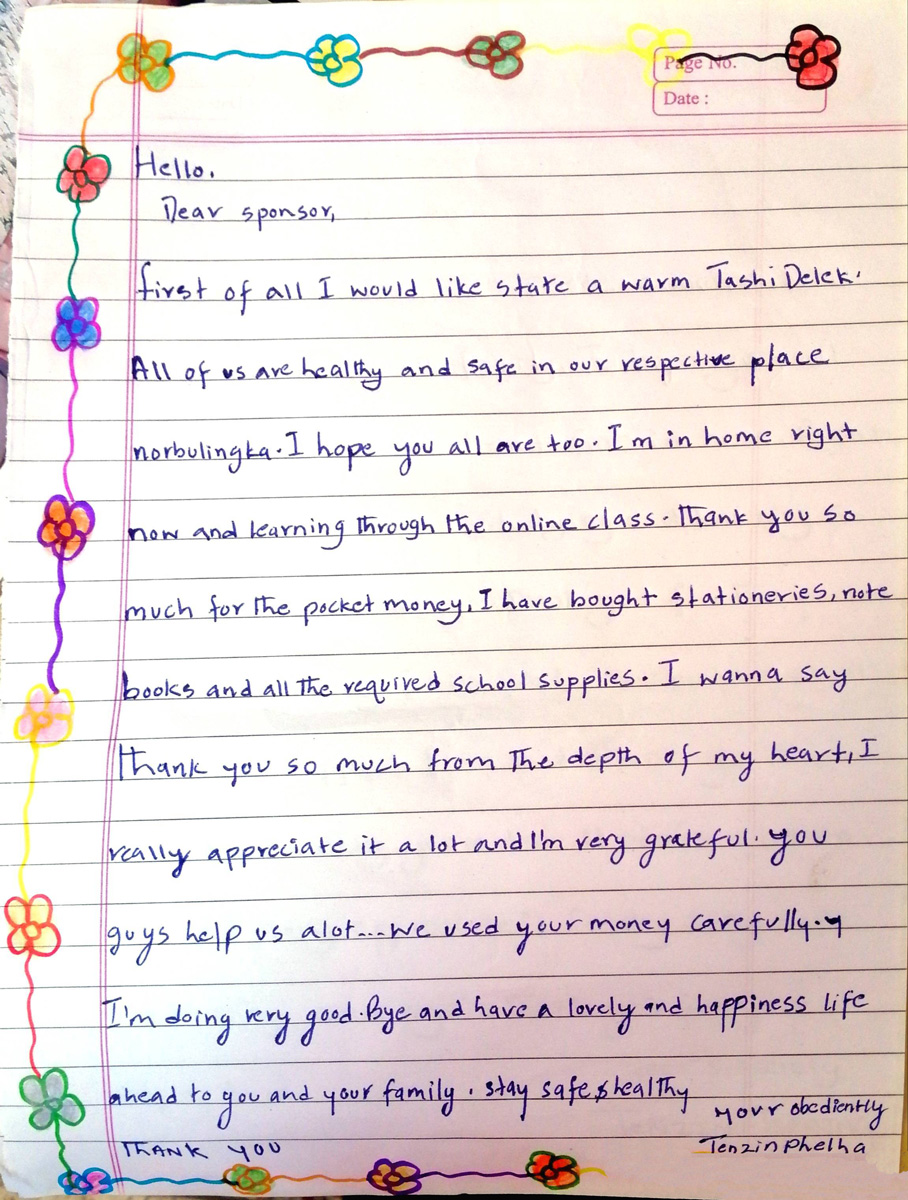 Page No.
Date :
Hello.
Dear sponsor,
first of all I would like state a warm Tashi Delek.
All of us are healthy and safe in our respective place
norbulingka. I hope you all are too. I m in home right
now and learning through the online class. Thank you so
much for the pocket money, I have bought stationeries, note
books and all the required school supplies. I wanna say
thank you so much from the depth of my heart, I
really appreciate it a lot and I'm very grateful. you
guys help us alot...we used your money carefully.
I'm doing very good. Bye and have a lovely and happiness life
ahead to you and your family. stay safe & healthy
your obediently
THANK YOU
Tenzin Phelha